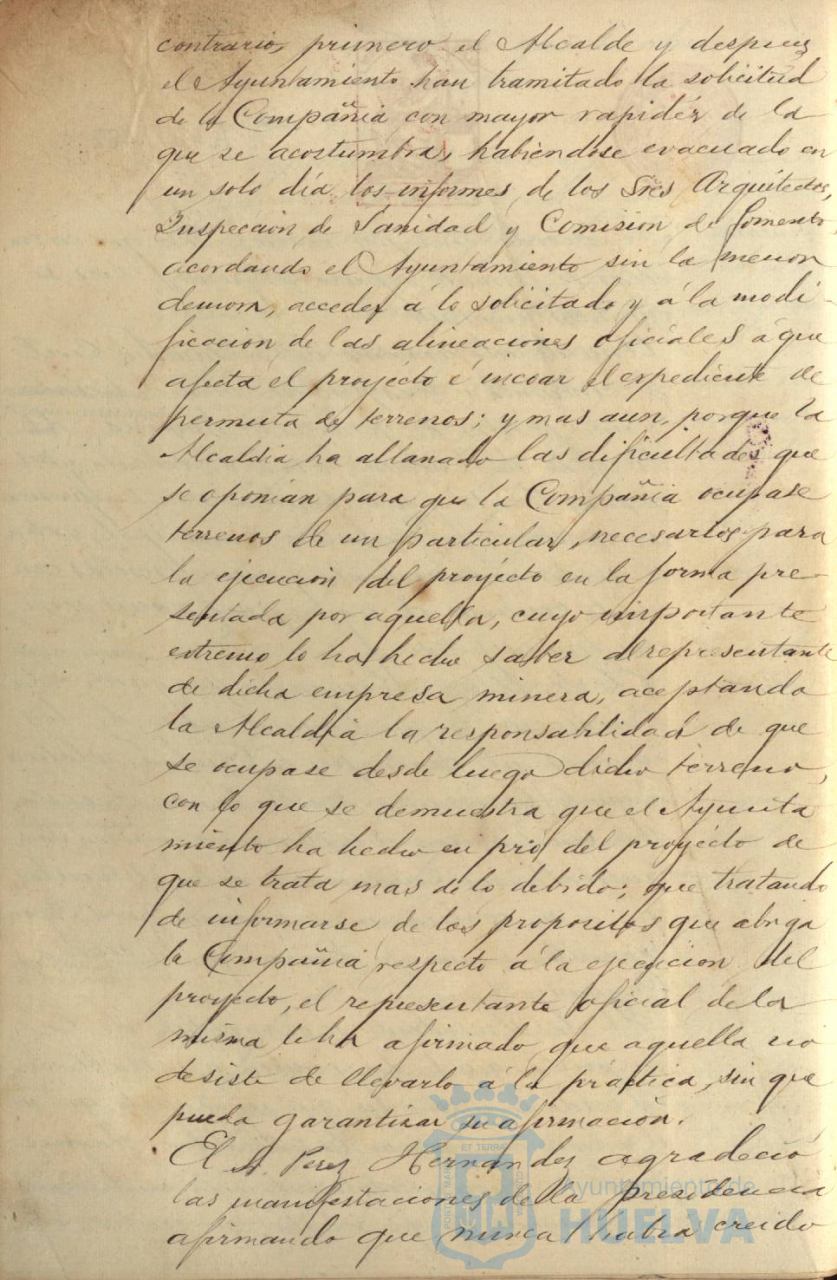 contrario, primero el Alcalde y despues
el Ayuntamiento han tramitado la solicitud
de la Compañia con mayor rapidéz de la
que se acostumbra, habiéndose evacuado en
un solo día los informes de los Sres Arquitectos,
Inspección de Sanidad y Comision de fomento,
acordando el Ayuntamiento sin la menor
demora, acceder á lo solicitado y á la modi-
ficacion de las alineaciones oficiales á que
afecta el proyécto é incoar el expediente de
permuta de terrenos; y mas aun, porque la
Alcaldia ha allanado las dificultades que
se oponian para que la Compañia ocupase
terrenos de un particular, necesarios para
la ejecución del proyécto en la forma pre-
sentada por aquella, cuyo importante
extremo lo ha hecho saber al representante
de dicha empresa minera, aceptando
la Alcaldia la responsabilidad de que
se ocupase desde luego dicho terreno,
con lo que se demuestra que el Ayunta
miento ha hecho en pró del proyécto de
que se trata mas de lo debido; que tratando
de informarse de los propositos que abriga
la Compañia respecto á la ejecucion del
proyecto, el representante oficial de la
misma le ha afirmado que aquella no
desiste de llevarlo á la práctica, sin que
pueda garantizar su afirmación.
El Sr. Perez Hernandez agradeció
las manifestaciones de la presidencia
afirmando que nunca habia creido
Ayuntamiento de
HUELVA